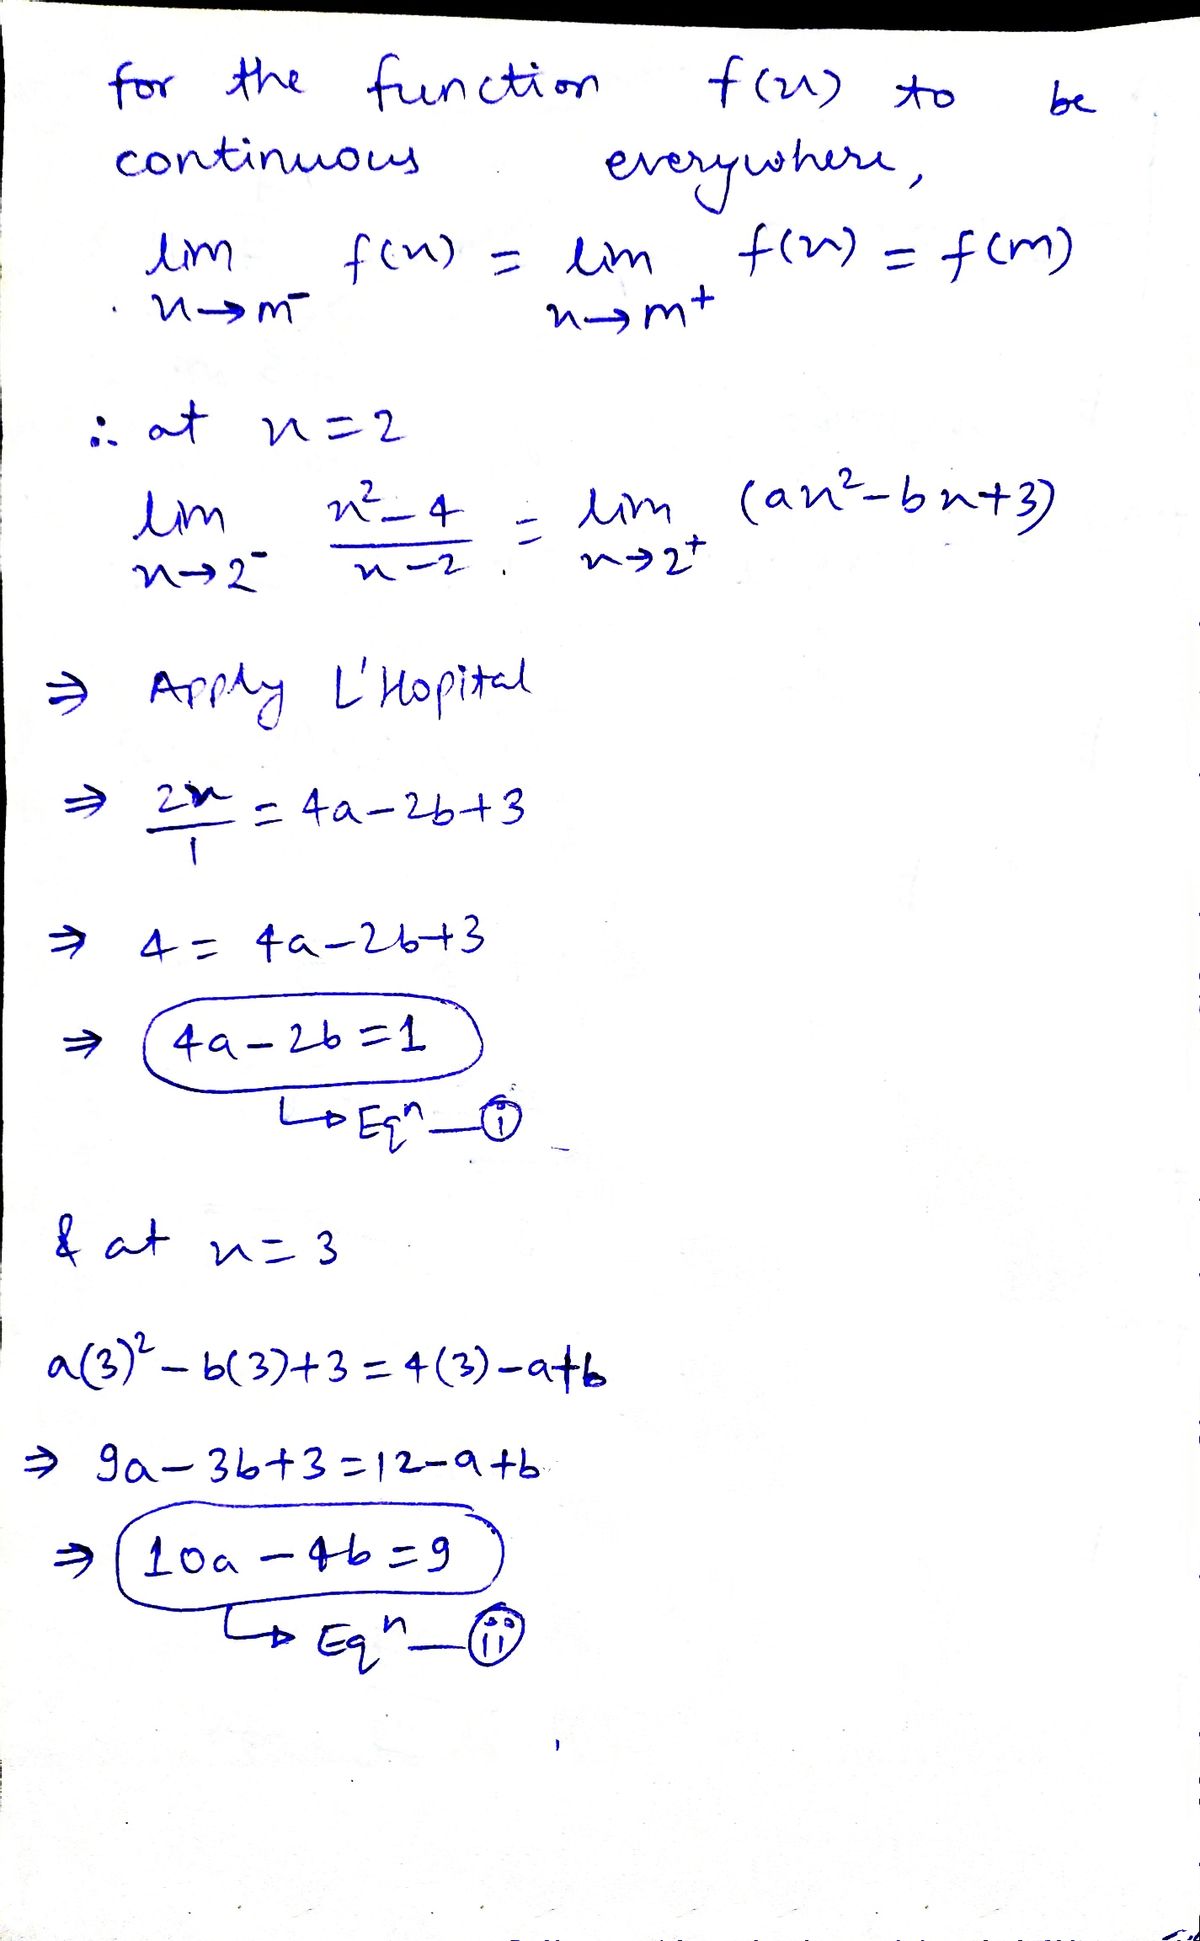 for the function f(x) to be
continuous everywhere,
lim f(x) = lim f(x) = f(m)
x→m⁻ x→m⁺
∴ at x=2
lim x²-4 = lim (ax²-bx+3)
x→2⁻ x-2 x→2⁺
⇒ Apply L'Hopital
⇒ 2x = 4a-2b+3
1
⇒ 4 = 4a-2b+3
⇒ 4a-2b=1
↳ Eqⁿ — (i)
& at x=3
a(3)²-b(3)+3=4(3)-a+b
⇒ 9a-3b+3=12-a+b
⇒ 10a-4b=9
↳ Eqⁿ — (ii)